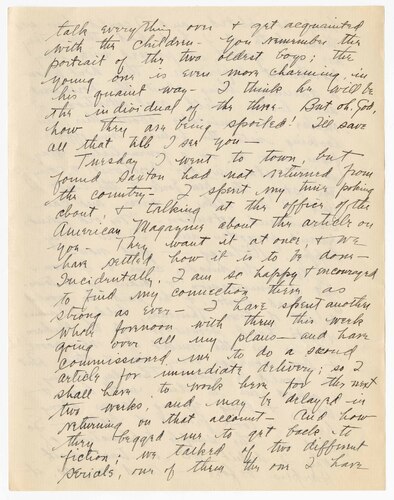 talk everything over & get acquainted
with the children - You remember the
portrait of the two oldest boys; the
young one is even more charming, in
his quaint way - I think he will be
the individual of the three - But oh, God,
how they are being spoiled! I'll save
all that till I see you -
Tuesday I went to town, but
found Saxton had not returned from
the country - I spent my time poking
about, & talking at the office of the
American Magazine about the article on
you - They want it at once, & we
have settled how it is to be done -
Incidentally, I am so happy & encouraged
to find my connection there as
strong as ever - I have spent another
whole forenoon with them this week
going over all my plans - and have
commissioned me to do a second
article for immediate delivery; so I
shall have to work here for the next
two weeks, and may be delayed in
returning on that account - And how
they begged me to get back to
fiction; we talked of two different
serials, one of them the one I have